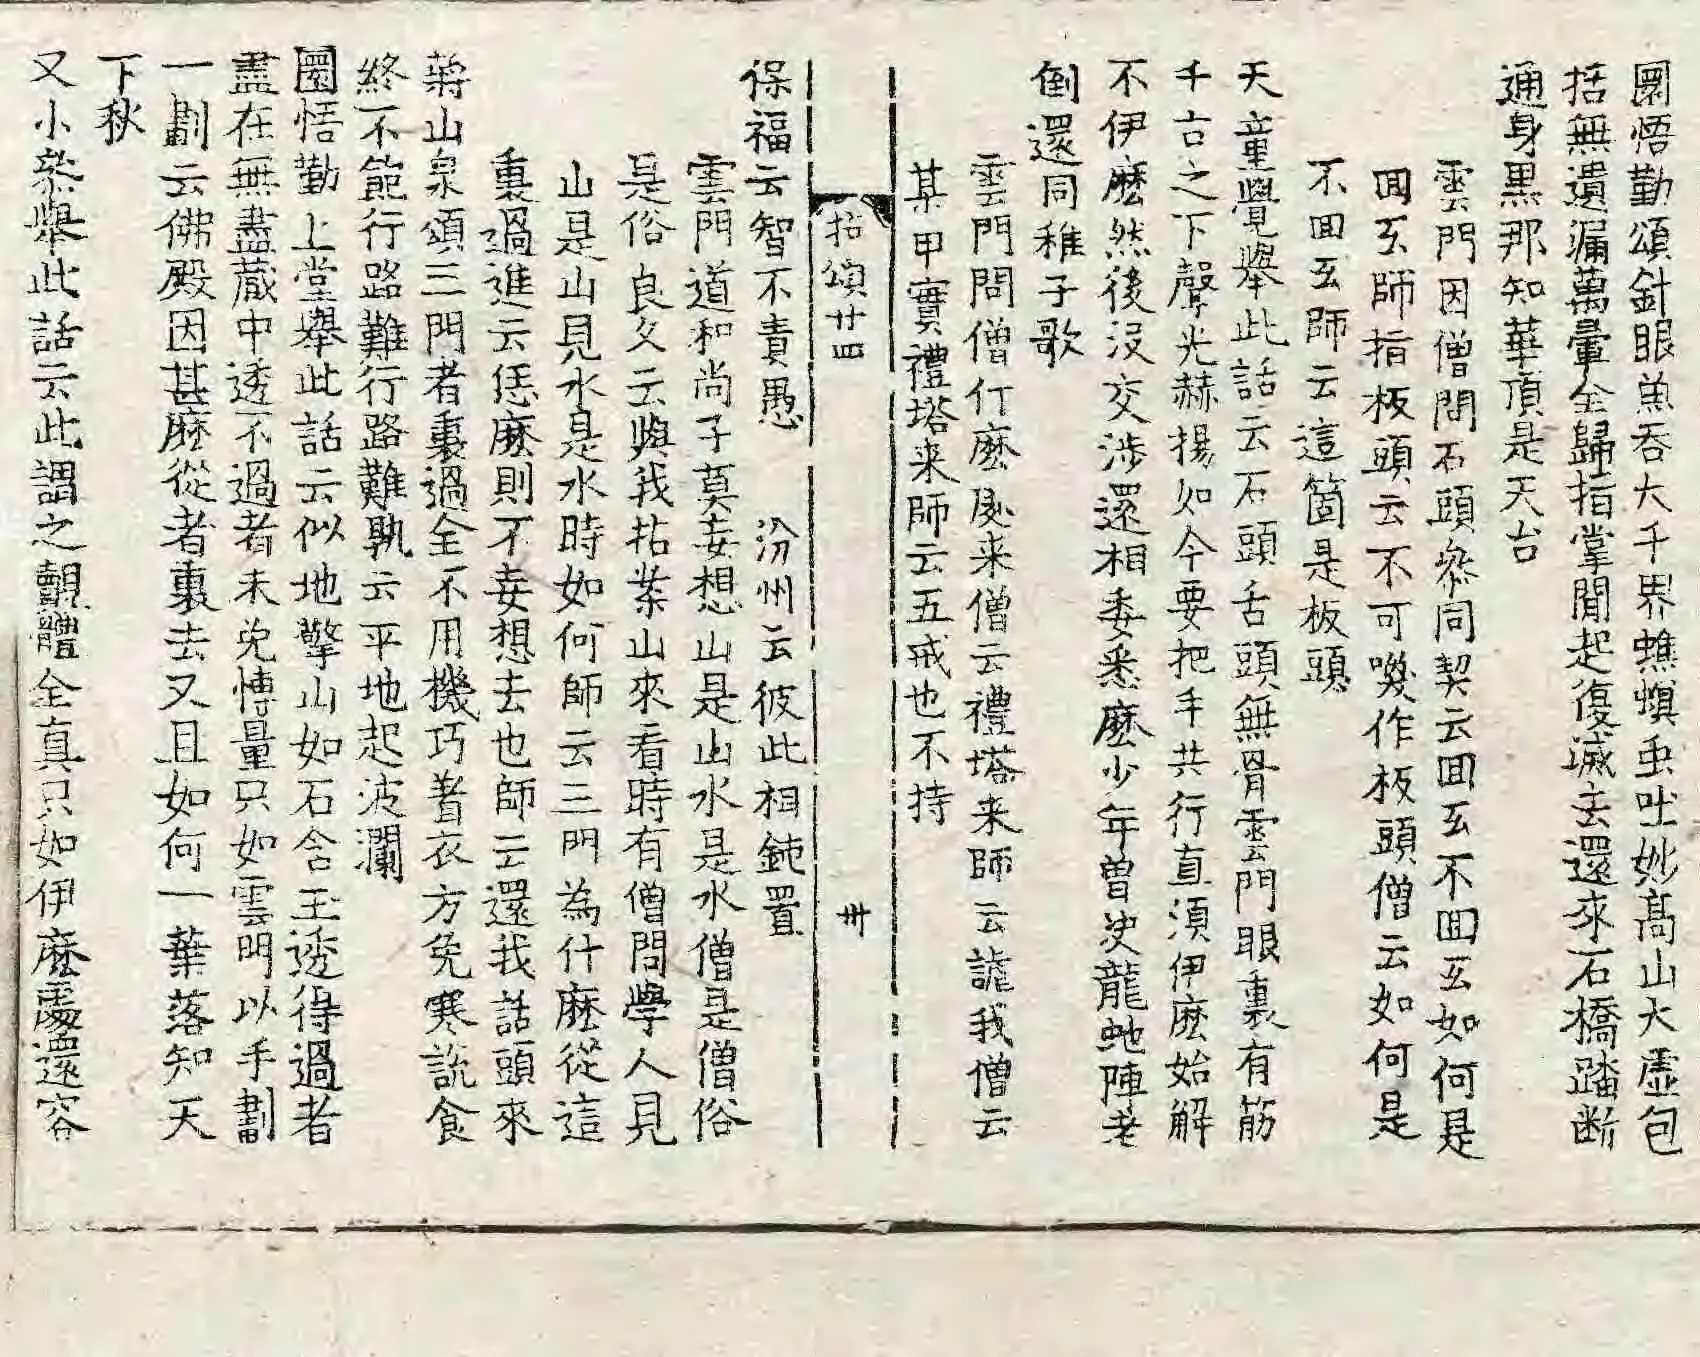 圜悟勤頌針眼魚吞大千界蟭螟虫吐妙髙山大虛包
括無遺漏萬彙全歸指掌間起復滅去還來石橋踏斷
通身黑那知華頂是天台
雲門因僧問石頭叅同契云回互不回互如何是
回互師指板頭云不可喚作板頭僧云如何是
不回互師云這箇是板頭
天童覺擧此話云石頭舌頭無骨雲門眼裏有筋
千古之下聲光赫揚如今要把手共行直須伊麽始解
不伊麽然後没交涉還相委悉麽少年曽决龍虵陣老
倒還同稚子歌
雲門問僧什麽處来僧云禮塔来師云謔我僧云
某甲實禮塔来師云五戒也不持
拈頌廿四
卅
保福云智不責愚 汾州云彼此相鈍置
雲門道和尚子莫妄想山是山水是水僧是僧俗
是俗良久云與我拈案山來看時有僧問學人見
山是山見水是水時如何師云三門為什麽從這
裏過進云恁麽則不妄想去也師云還我話頭來
蒋山泉頌三門者裏過全不用機巧著衣方免寒說食
終不飽行路難行路難孰云平地起波瀾
圜悟勤上堂擧此話云似地擎山如石含玉透得過者
盡在無盡蔵中透不過者未免愽量只如雲門以手劃
一劃云佛殿因甚麽從者裏去又且如何一葉落知天
下秋
又小叅擧此話云此謂之覿體全真只如伊麽處還容